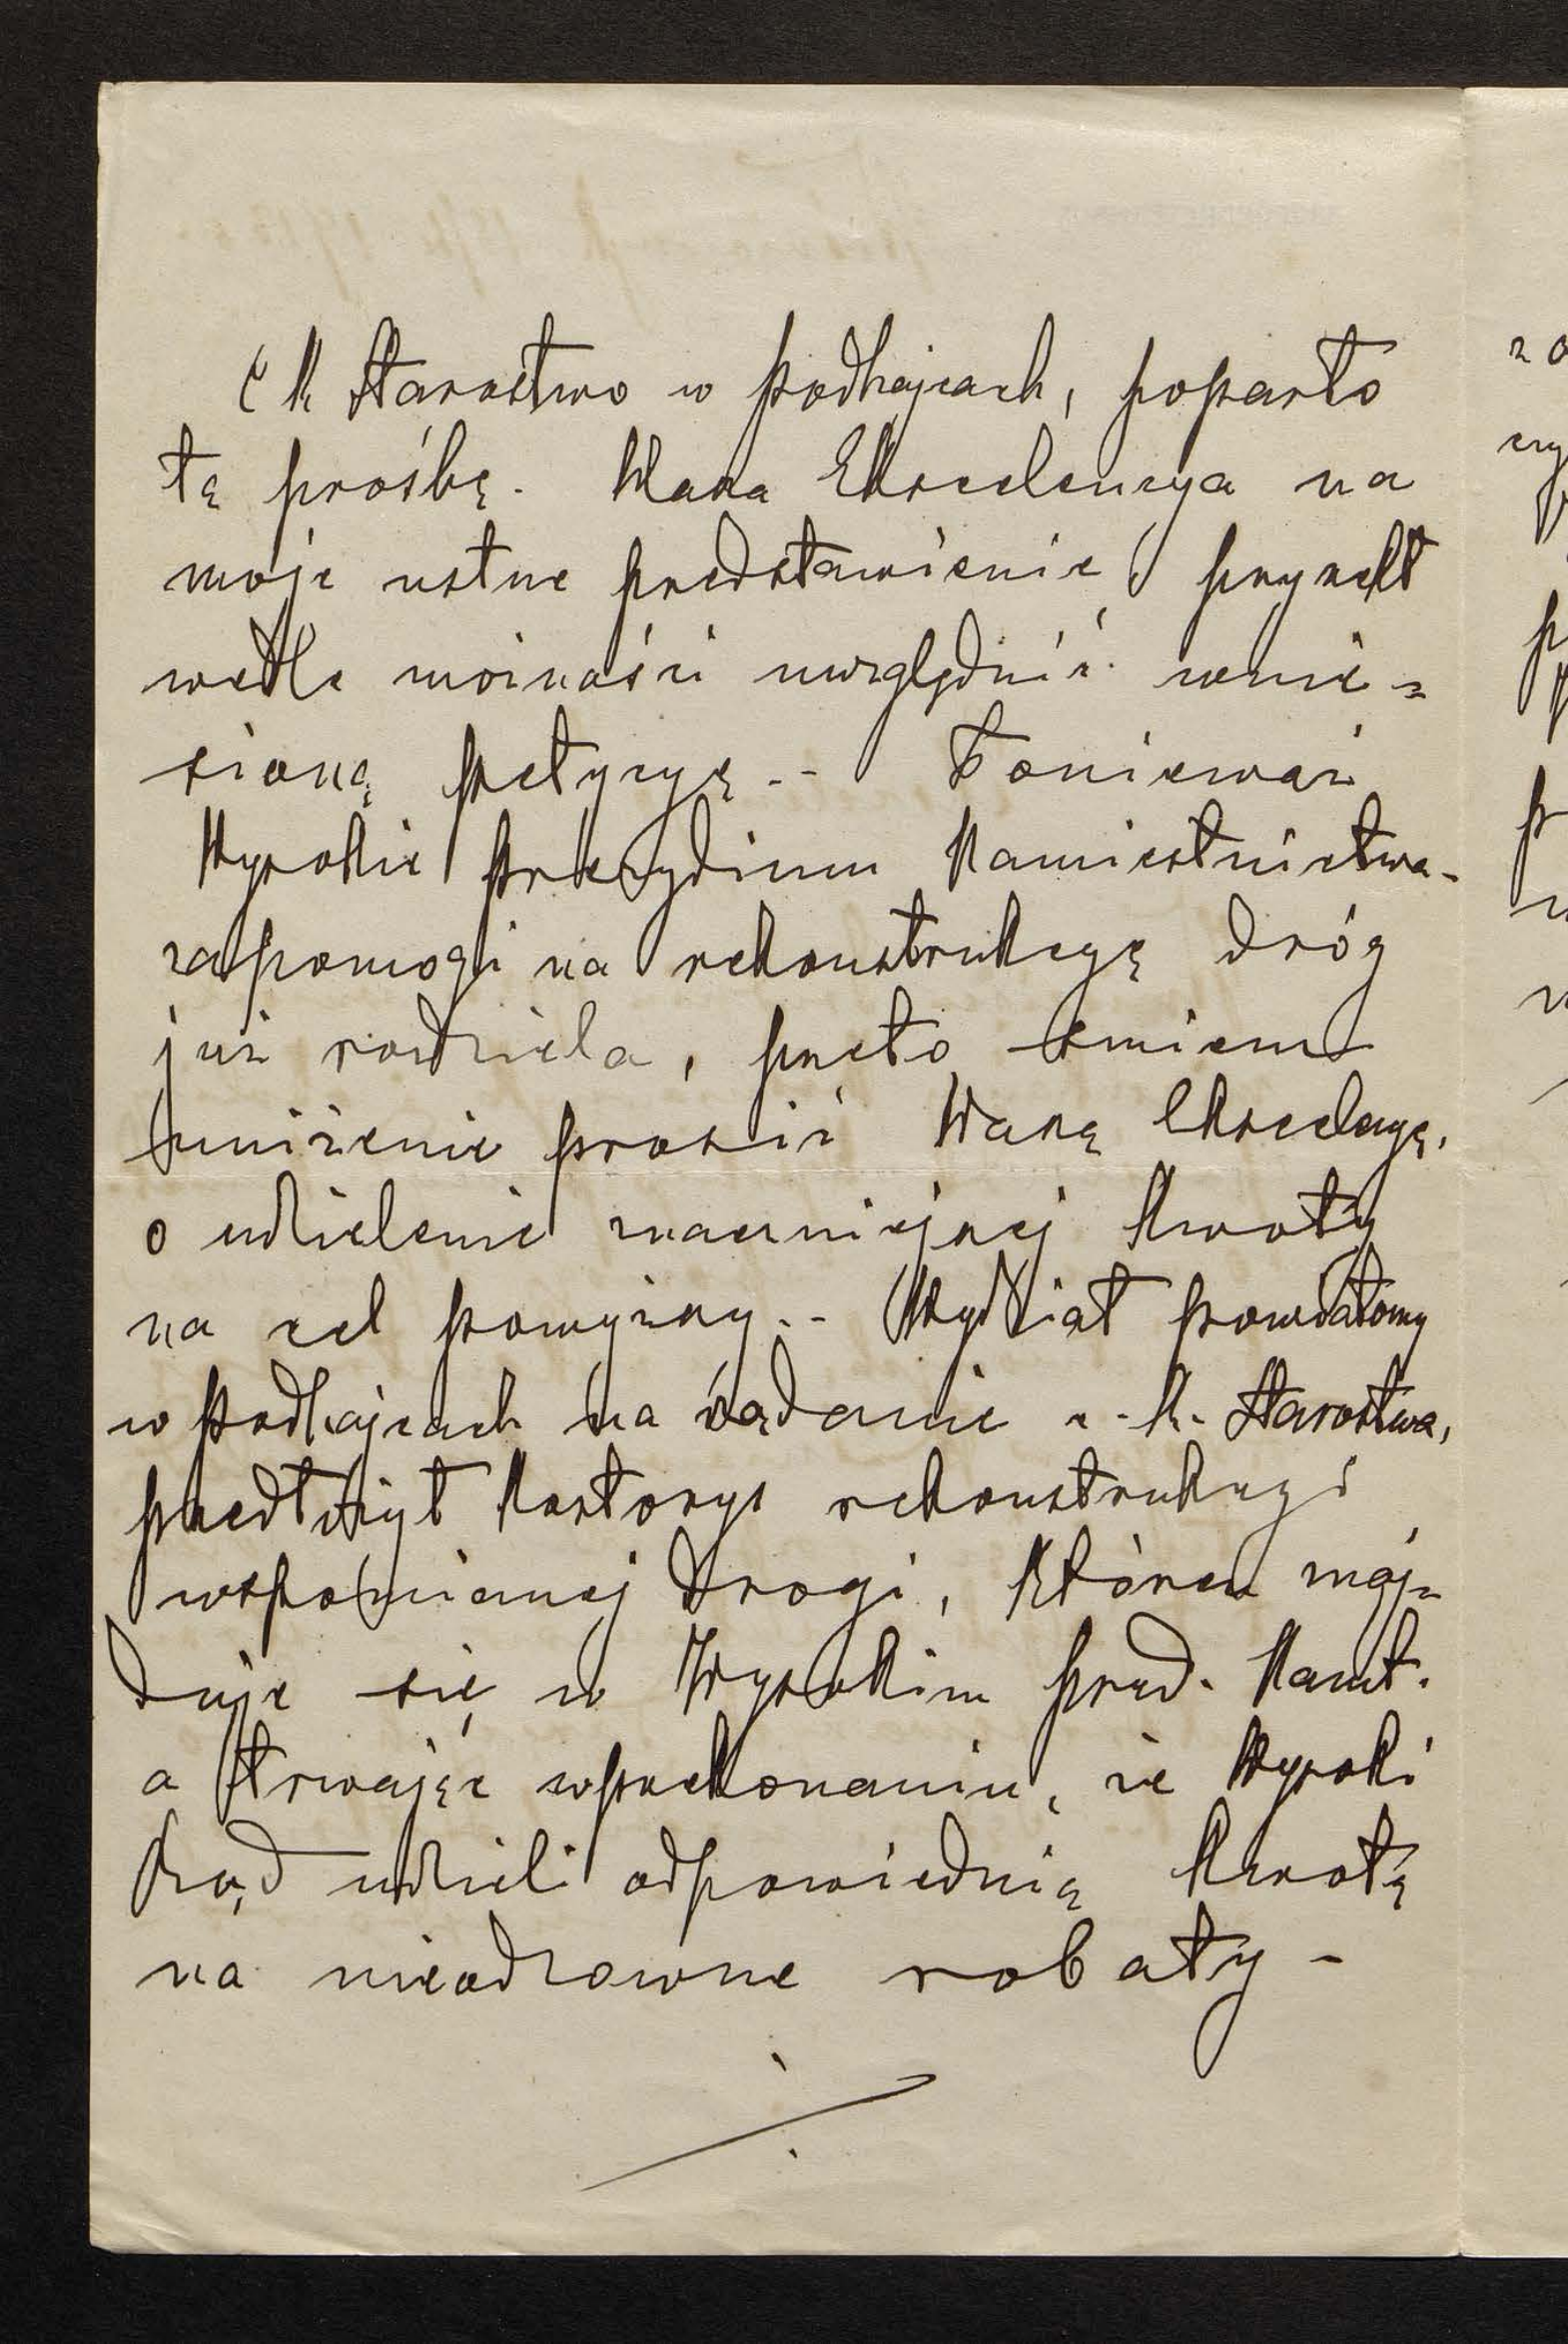 C K Starostwo w Podhajcach, poparło
tę prośbę. Wasza Ekscelencya na
moje ustne przedstawienie przyrzekł
wedle możności uwzględnić wnie=
sioną petycyę.- Ponieważ
Wysokie Prezydium Namiestnictwa
zapomogi na rekonstrukcyę dróg
już rozdziela, przeto śmiem
uniżenie prosić Waszą Ekscelencyę,
o udzielenie znaczniejszej kwoty
na cel powyższy.- Wydział powiatowy
w Podhajcach na żądanie c. k. Starostwa,
przedłożył kosztorys rekonstrukcyi
wspomnianej drogi, któren znaj=
duje się w Wysokim Prezd. Namt.
a trwając w przekonaniu, że Wysoki
Rząd udzieli odpowiednią kwotę
na nieodzowne roboty -